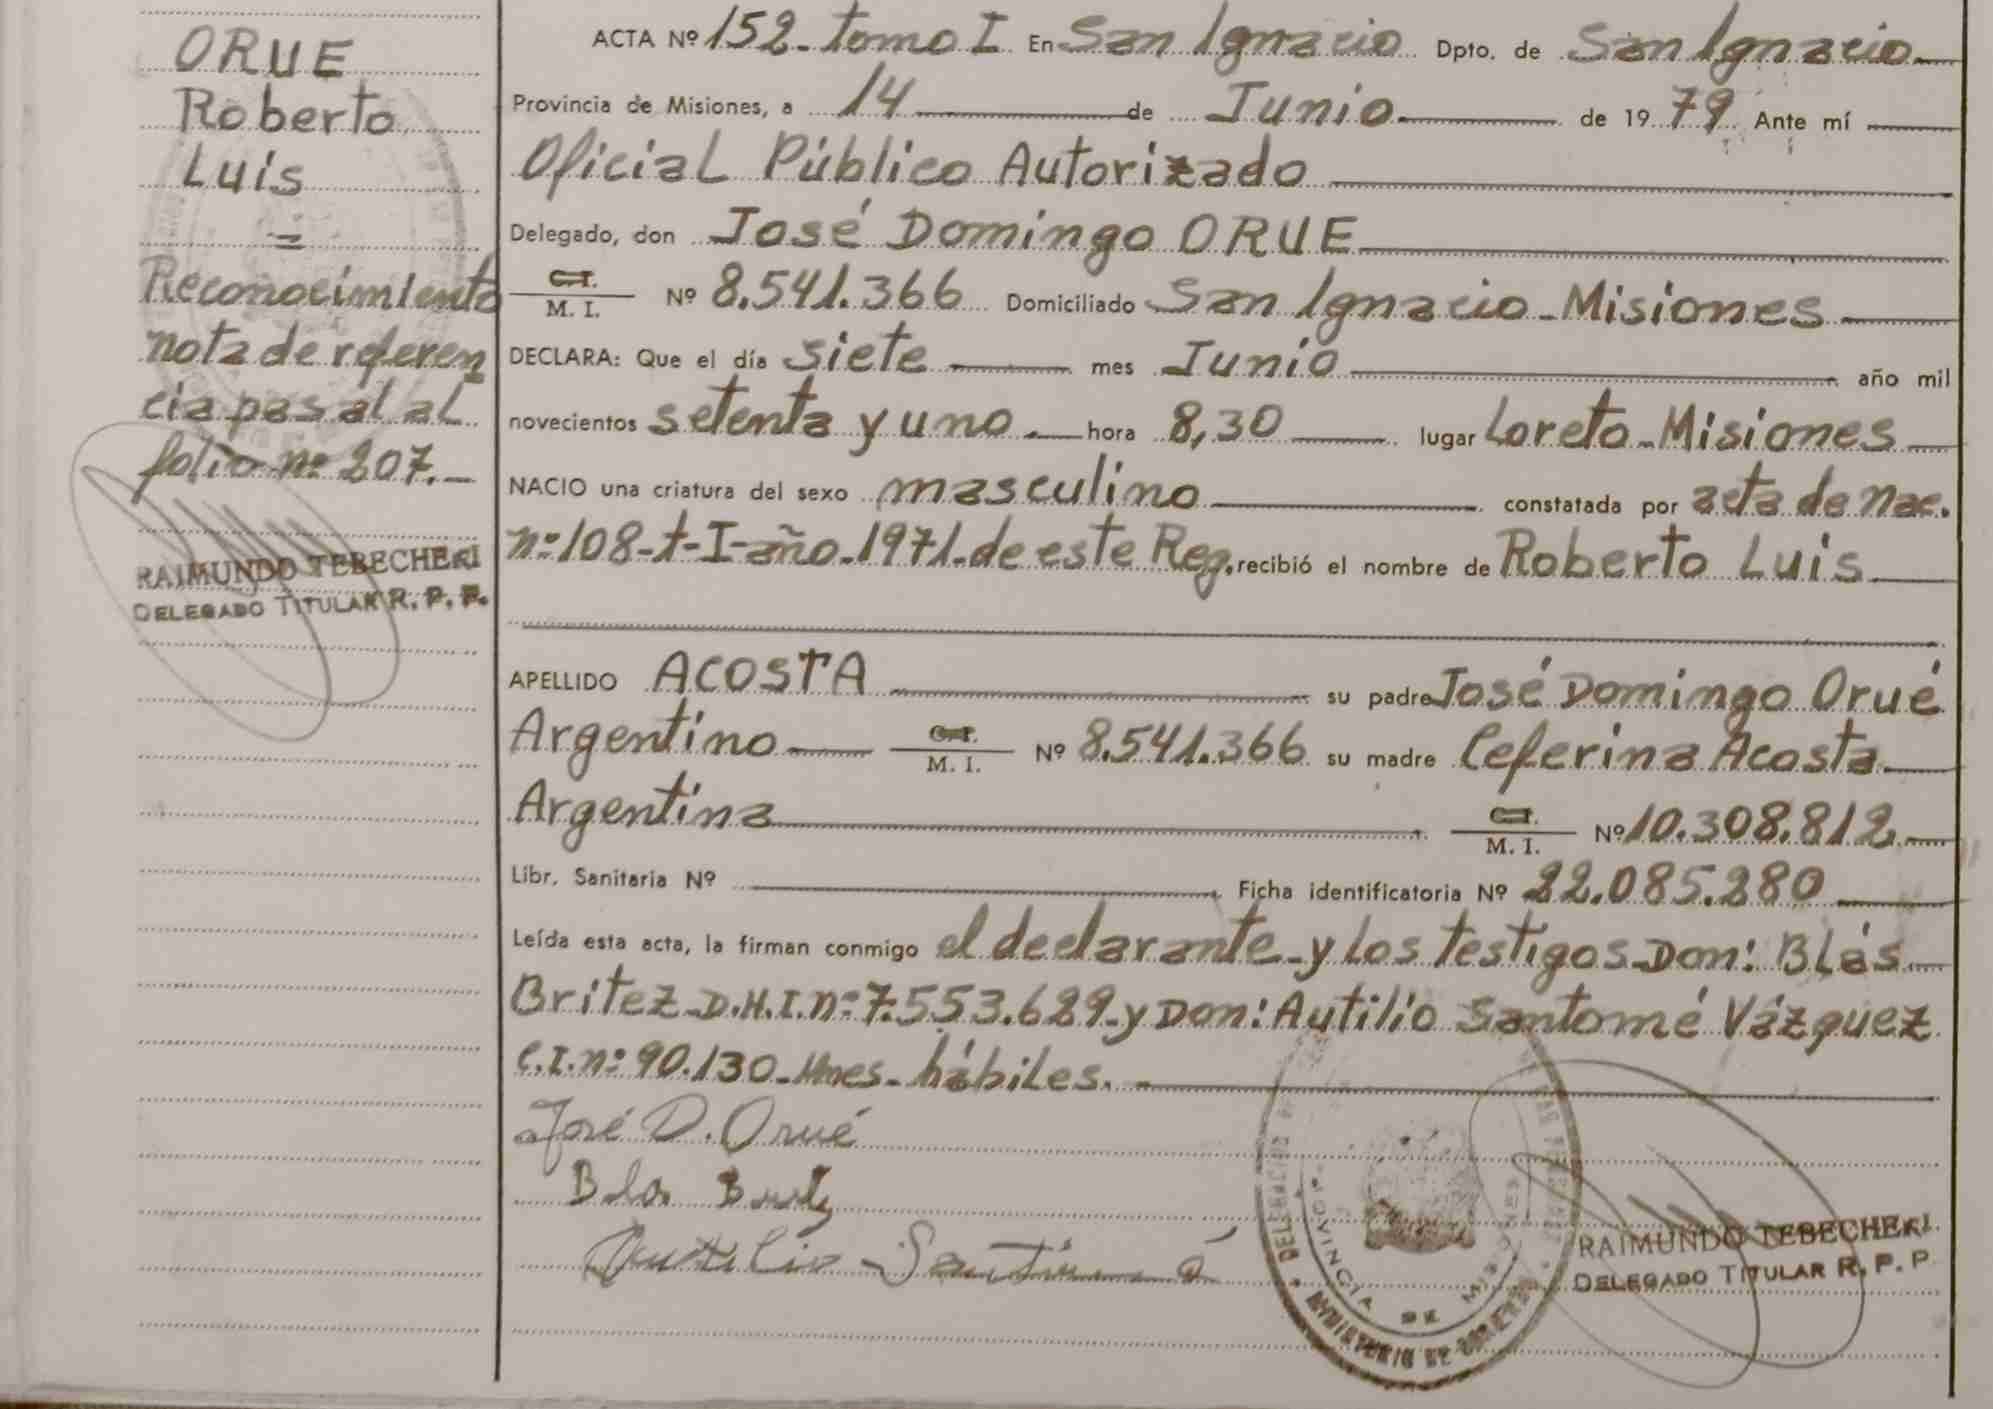 ORUE
Roberto
Luis
=
Reconocimiento
nota de referen
cia pasa al al
folio nº 207.-
RAIMUNDO TEBECHERI
DELEGADO TITULAR R. P. P.
ACTA Nº 152- tomo I En San Ignacio Dpto. de San Ignacio
Provincia de Misiones, a 14 de Junio de 1979 Ante mí
Oficial Público Autorizado
Delegado, don José Domingo ORUE
C.I.
M. I. Nº 8.541.366 Domiciliado San Ignacio-Misiones
DECLARA: Que el día siete mes Junio año mil
novecientos setenta y uno hora 8,30 lugar Loreto-Misiones
NACIO una criatura del sexo masculino constatada por acta de nac.
nº 108-t-I-año-1971-de este Reg. recibió el nombre de Roberto Luis
APELLIDO ACOSTA su padre José Domingo Orué
Argentino C.I. M. I. Nº 8.541.366 su madre Ceferina Acosta
Argentina C.I. M. I. Nº 10.308.812
Libr. Sanitaria Nº Ficha identificatoria Nº 22.085.280
Leída esta acta, la firman conmigo el declarante y los testigos-Don: Blás
Britez-D.N.I. nº 7.553.629-y Don: Autilio Santomé Vázquez
C.I. nº 90.130-Mnes-hábiles.
José D. Orué
Blas
Autilio
PROVINCIA DE MISIONES
MINISTERIO DE GOBIERNO
RAIMUNDO TEBECHERI
DELEGADO TITULAR R. P. P